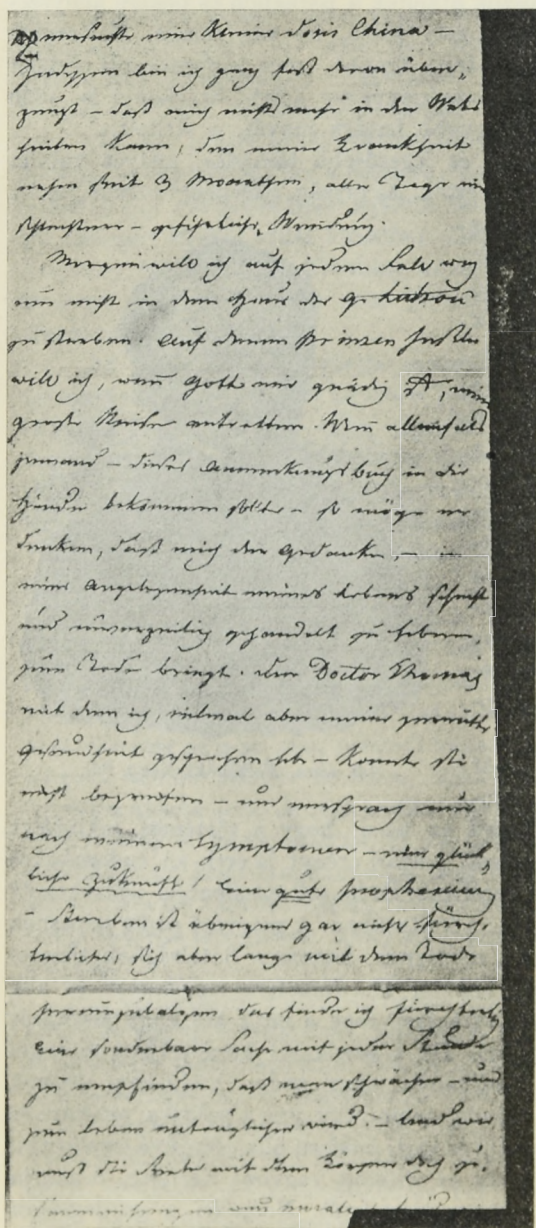 versuchte eine kleine dosis China –
Indessen bin ich ganz fest davon über-
zeugt – daß mich nichts mehr in der Welt
heilen kann, denn meine Krankheit
nahm seit 3 Monathen, alle Tage eine
schlechtere – gefährliche Wendung.
Morgen will ich auf jeden Fall weg
um nicht in dem Haus der
zu sterben. Auf denen Prinzen Inseln
will ich, wenn Gott mir gnädig ist, meine
große Reise antretten. Wenn allenfals
jemand – dieses Anmerkungsbuch in die
Hände bekommen sollte – so möge er
denken, daß mich der Gedanke, – in
einer Angelegenheit meines Lebens schlecht
und unverzeihlich gehandelt zu haben,
zum Tode bringt. Der Doctor Thomas
mit dem ich, einmal über meine zerrüttete
Gesundheit gesprochen habe – konnte sie
nicht begreifen – und versprach mir
nach meinen Symptomen – eine glück-
liche Zukunft! Eine gute prophezeiung
– Sterben ist übrigens gar nicht fürch-
terlich, sich aber lange mit dem Tode
herumzubalgen das finde ich fürchterlich
Eine sonderbare Sache mit jeder Stunde
zu empfinden, daß man schwächer – und
zum leben untauglicher wird. – Und wie
muß die Seele mit dem Körper doch zu-